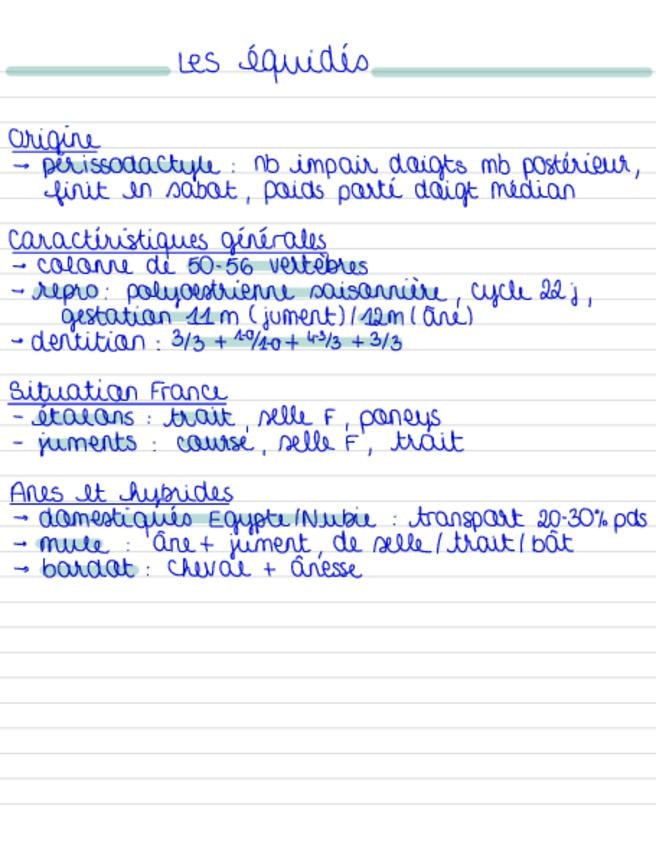 Les équidés
Origine
→ périssodactyle : nb impair doigts mb postérieur,
finit en sabot, poids porté doigt médian
Caractéristiques générales
→ colonne de 50-56 vertèbres
→ repro : polyoestrienne saisonnière, cycle 22 j,
gestation 11 m (jument) / 12m (âne)
→ dentition : 3/3 + 10/10 + 4-3/3 + 3/3
Situation France
- étalons : trait, selle F, poneys
- juments : course, selle F, trait
Anes et hybrides
→ domestiqués Egypte/Nubie : transport 20-30% pds
→ mule : âne + jument, de selle / trait / bât
→ bardot : cheval + ânesse